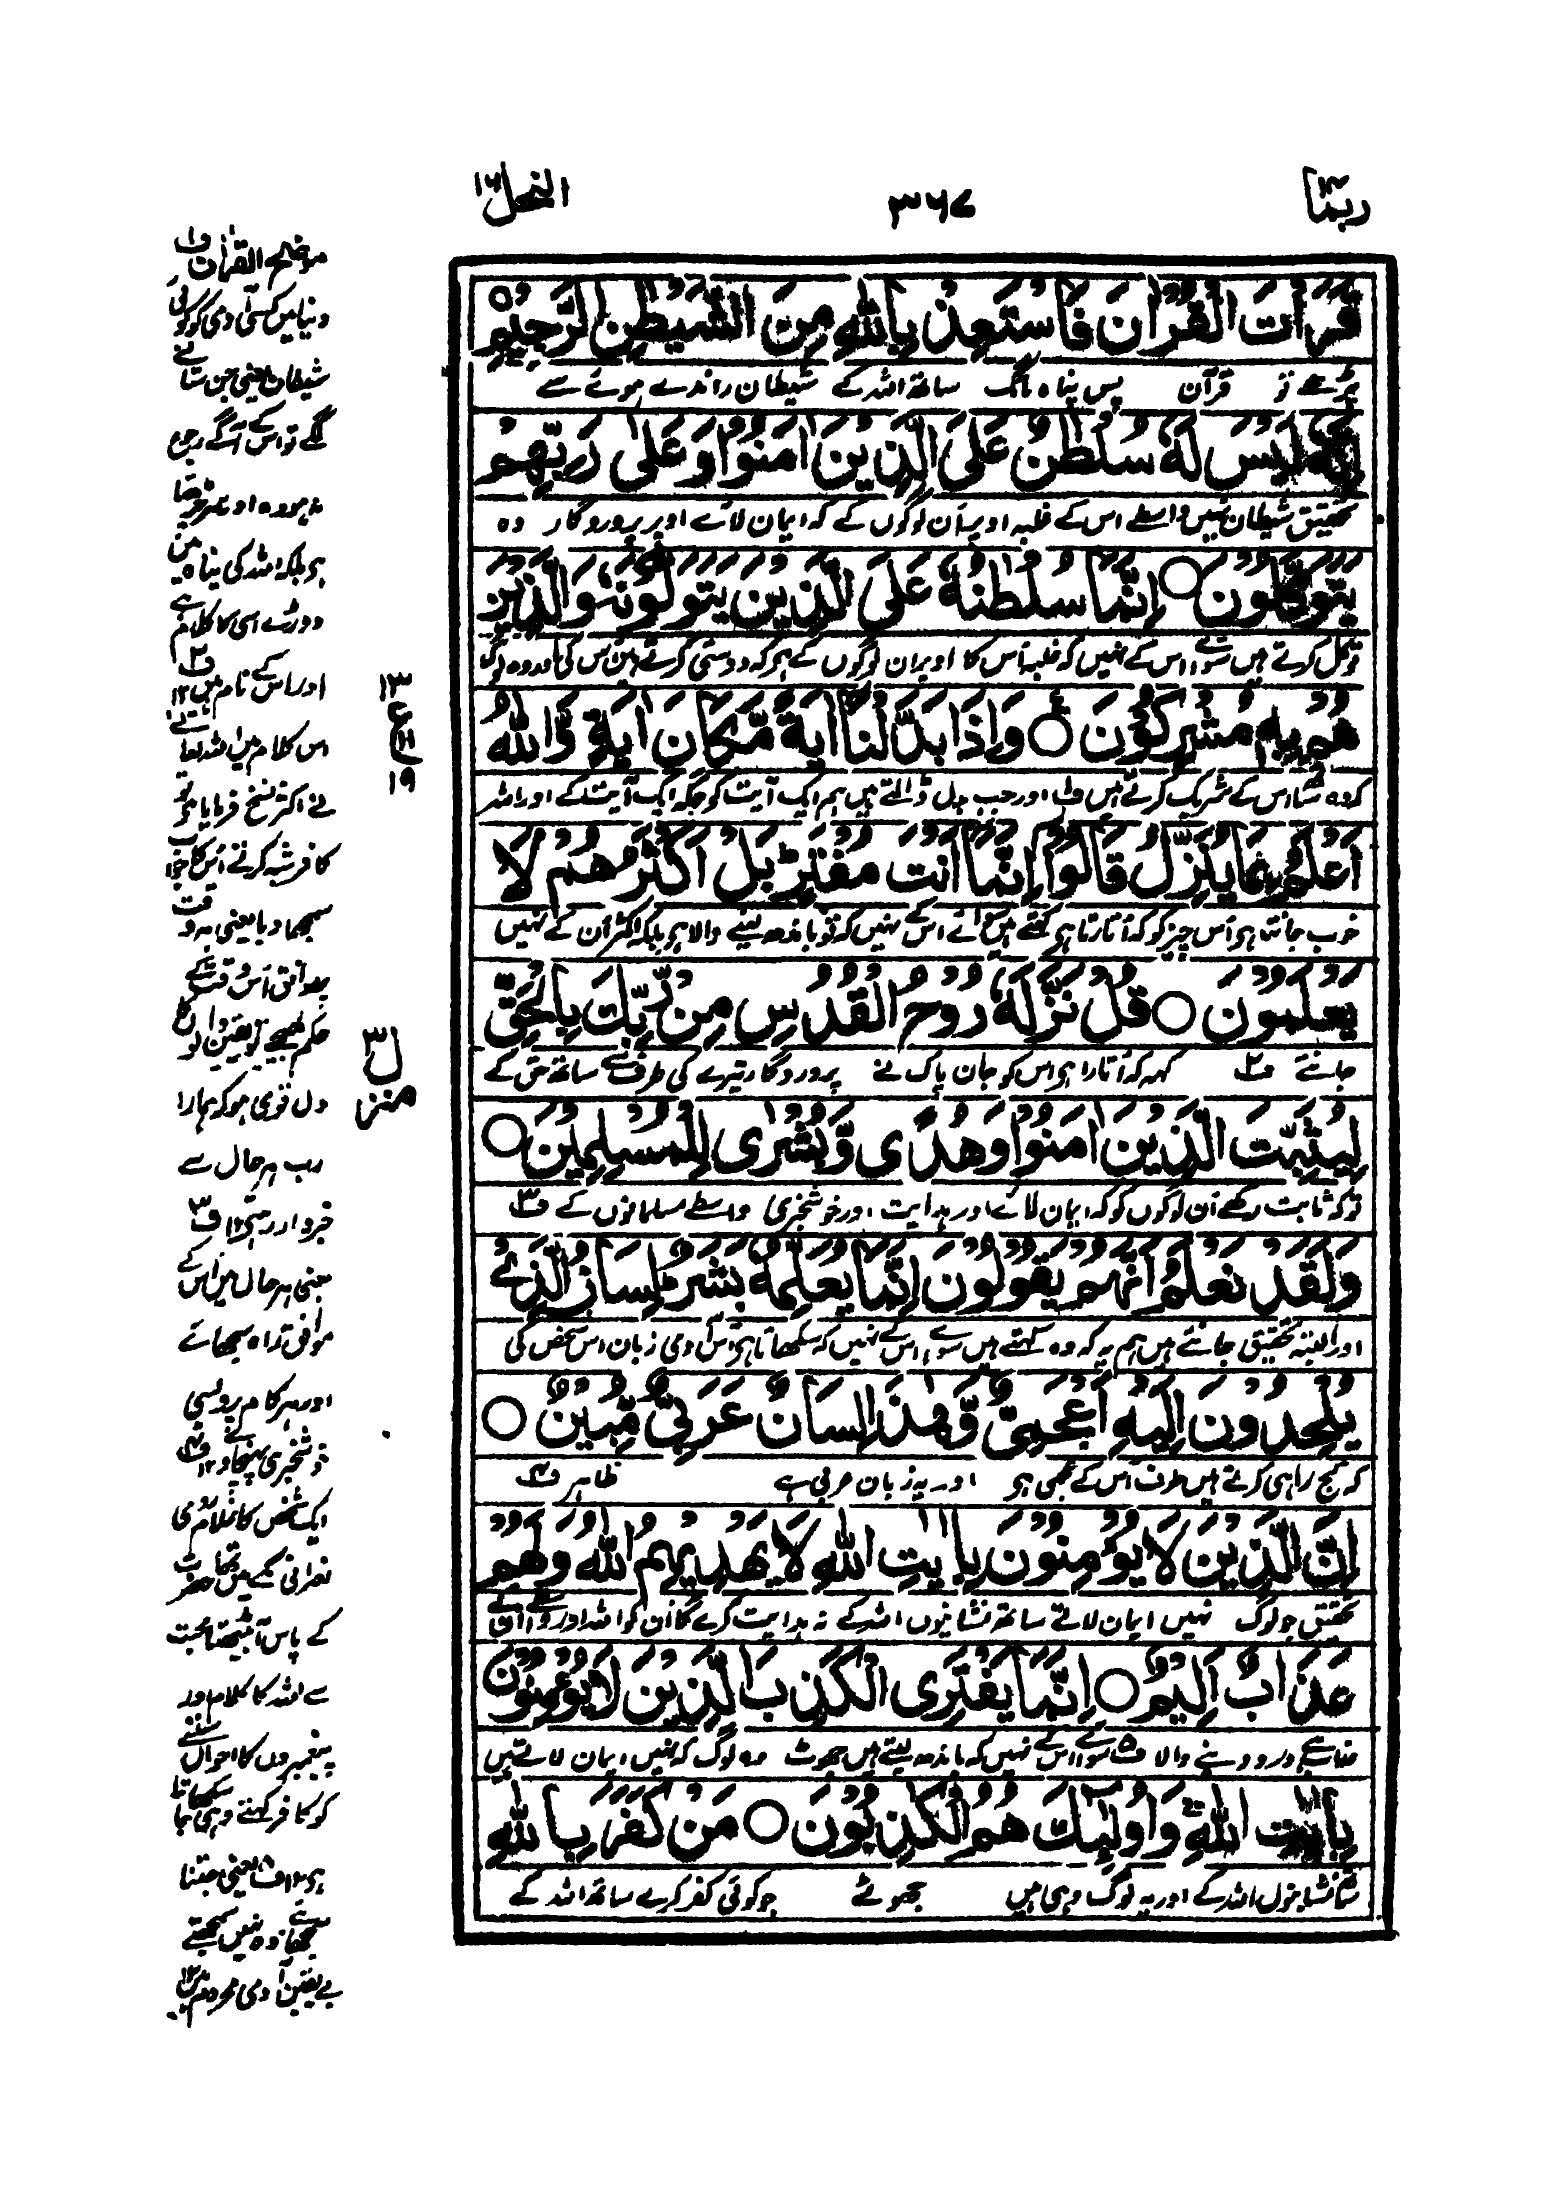 ربما ١٤
٣٦٧
النحل ١٦
قَرَأْتَ الْقُرْاٰنَ فَاسْتَعِذْ بِاللّٰهِ مِنَ الشَّيْطٰنِ الرَّجِيْمِ ○
پڑھے تو قرآن پس پناہ مانگ ساتھ اللہ کے شیطان راندے ہوئے سے
اِنَّهٗ لَيْسَ لَهٗ سُلْطٰنٌ عَلَى الَّذِيْنَ اٰمَنُوْا وَعَلٰى رَبِّهِمْ
تحقیق شیطان نہیں واسطے اس کے غلبہ اوپر اُن لوگوں کے کہ ایمان لائے اوپر پروردگار وہ
يَتَوَكَّلُوْنَ ○ اِنَّمَا سُلْطٰنُهٗ عَلَى الَّذِيْنَ يَتَوَلَّوْنَهٗ وَالَّذِيْنَ
توکل کرتے ہیں سوائے اس کے نہیں کہ غلبہ اُس کا اوپر ان لوگوں کے ہے کہ دوستی کرتے ہیں اُس کی اور وہ لوگ
هُمْ بِهٖ مُشْرِكُوْنَ ○ وَاِذَا بَدَّلْنَا اٰيَةً مَّكَانَ اٰيَةٍ وَّاللّٰهُ
کہ وہ ساتھ اس کے شریک کرتے ہیں ف اور جب بدل ڈالتے ہیں ہم ایک آیت کو جگہ ایک آیت کے اور اللہ
اَعْلَمُ بِمَا يُنَزِّلُ قَالُوْٓا اِنَّمَآ اَنْتَ مُفْتَرٍ بَلْ اَكْثَرُهُمْ لَا
خوب جانتا ہے اُس چیز کو کہ اُتارتا ہے کہتے ہیں سوائے اس کے نہیں کہ تو باندھ لینے والا ہے بلکہ اکثر اُن کے نہیں
يَعْلَمُوْنَ ○ قُلْ نَزَّلَهٗ رُوْحُ الْقُدُسِ مِنْ رَّبِّكَ بِالْحَقِّ
جانتے ف۲ کہہ کہ اُتارا ہے اس کو جان پاک نے پروردگار تیرے کی طرف سے ساتھ حق کے
لِيُثَبِّتَ الَّذِيْنَ اٰمَنُوْا وَهُدًى وَّبُشْرٰى لِلْمُسْلِمِيْنَ ○
توکہ ثابت رکھے اُن لوگوں کو کہ ایمان لائے اور ہدایت اور خوشخبری واسطے مسلمانوں کے ف۳
وَلَقَدْ نَعْلَمُ اَنَّهُمْ يَقُوْلُوْنَ اِنَّمَا يُعَلِّمُهٗ بَشَرٌ لِسَانُ الَّذِيْ
اور البتہ تحقیق جانتے ہیں ہم یہ کہ وہ کہتے ہیں سوائے اس کے نہیں کہ سکھاتا ہے اُس آدمی زبان اس شخص کی
يُلْحِدُوْنَ اِلَيْهِ اَعْجَمِيٌّ وَّهٰذَا لِسَانٌ عَرَبِيٌّ مُّبِيْنٌ ○
کہ کج راہی کرتے ہیں طرف اُس کے عجمی ہے اور یہ زبان عربی ہے ظاہر ف۴
اِنَّ الَّذِيْنَ لَا يُؤْمِنُوْنَ بِاٰيٰتِ اللّٰهِ لَا يَهْدِيْهِمُ اللّٰهُ وَلَهُمْ
تحقیق جو لوگ نہیں ایمان لاتے ساتھ نشانیوں اللہ کے نہ ہدایت کرے گا اُن کو اللہ اور واسطے اُن کے
عَذَابٌ اَلِيْمٌ ○ اِنَّمَا يَفْتَرِى الْكَذِبَ الَّذِيْنَ لَا يُؤْمِنُوْنَ
عذاب ہے درد دینے والا ف۵ سوائے اس کے نہیں کہ باندھ لیتے ہیں جھوٹ وہ لوگ کہ نہیں ایمان لاتے ہیں
بِاٰيٰتِ اللّٰهِ وَاُولٰٓئِكَ هُمُ الْكٰذِبُوْنَ ○ مَنْ كَفَرَ بِاللّٰهِ
ساتھ نشانیوں اللہ کے اور یہ لوگ وہی ہیں جھوٹے جو کوئی کفر کرے ساتھ اللہ کے
موضح القرآن ف
دنیا میں کسی آدمی کو کوئی
شیطان یعنی جن ستانے
لگے تو اس کے آگے رجوع
نہ ہو وہ اور سر چڑھتا
ہے بلکہ اللہ کی پناہ میں
دوڑے اسی کا کلام ہے
اور اس کے نام میں ۱۲ ف۲
اس کلام میں اللہ تعالیٰ
نے اکثر نسخ فرمایا ہے تو
کافر شبہ کرتے اُس کا جواب
سمجھا دیا یعنی ہر وقت
موافق اُس وقت کے
حکم بھیجے تو یقین والوں کا
دل قوی ہو کہ ہمارا
رب ہر حال سے
خبردار ہے ۱۲ ف۳
یعنی ہر حال میں اُس کے
موافق راہ سجھائے
اور ہر کام پر ویسی
خوشخبری پہنچاوے ۱۲ ف۴
ایک شخص کا غلام رومی
نصرانی مکے میں تھا حضرت
کے پاس آ بیٹھتا محبت
سے اللہ کا کلام اور
پیغمبروں کا احوال سننے
کو کافر کہتے وہی سکھاتا جا
ہے ف۵ یعنی جتنا
سمجھائیے وہ نہیں سمجھتے
بے یقین آدمی محروم ہے ۱۲
١٣
ع
١٩
منزل ٣